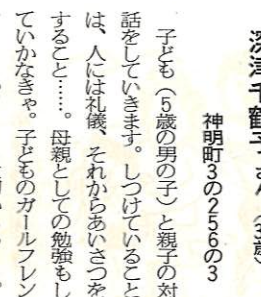 深津千鶴子さん
神明町3の256の3
子ども（5歳の男の子）と親子の対
話をしていきます。しつけていること
は、人には礼儀、それからあいさつを
すること……。母親としての勉強もし
ていかなきゃ。子どものガールフレン